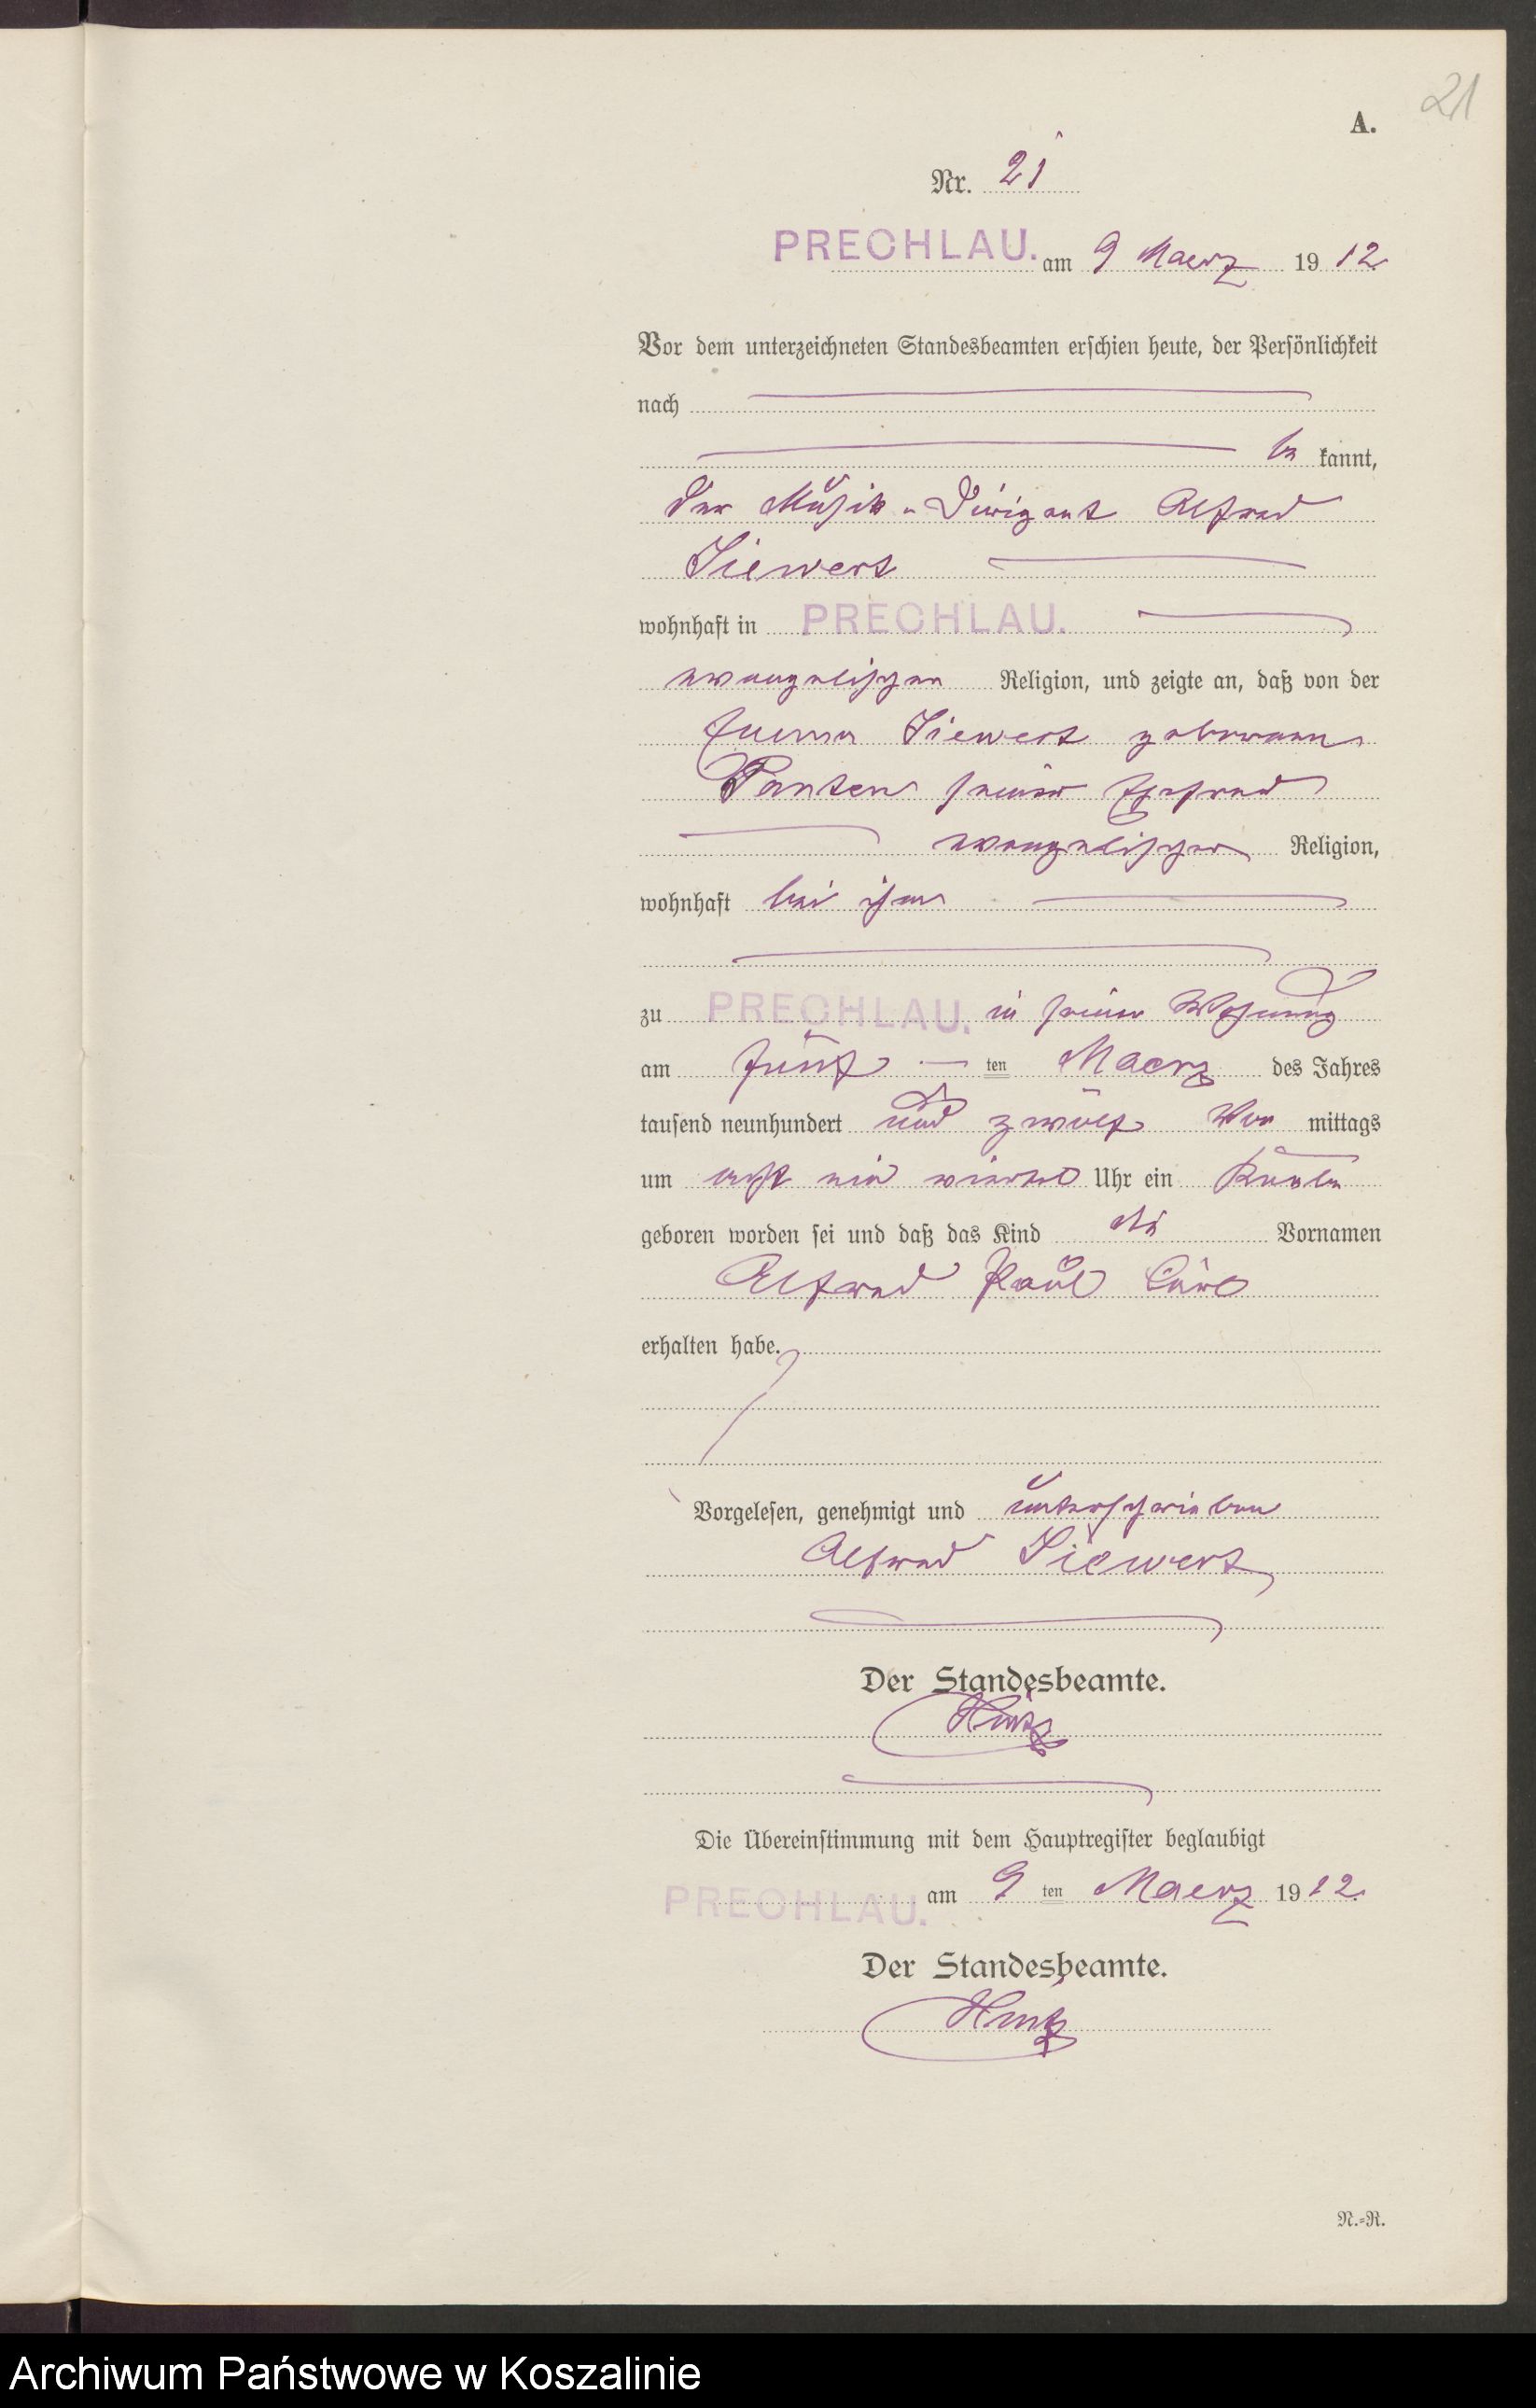 21
A.
Nr. 21
PRECHLAU. am 9 Maerz 1912
Vor dem unterzeichneten Standesbeamten erschien heute, der Persönlichkeit
nach
be kannt,
der Musik-Dirigent Alfred
Siewert
wohnhaft in PRECHLAU.
evangelischer Religion, und zeigte an, daß von der
Siewert geborenen
Panten seiner Ehefrau
evangelischer Religion,
wohnhaft bei ihm
zu PRECHLAU. in seiner Wohnung
am fünf ten Maerz des Jahres
tausend neunhundert und zwölf Vor mittags
um acht ein viertel Uhr ein Knabe
geboren worden sei und daß das Kind die Vornamen
Alfred Paul
erhalten habe.
Vorgelesen, genehmigt und unterschrieben
Alfred Siewert
Der Standesbeamte.
Hintz
Die Übereinstimmung mit dem Hauptregister beglaubigt
PRECHLAU. am 9 ten Maerz 1912.
Der Standesbeamte.
Hintz
N.-R.
Archiwum Państwowe w Koszalinie